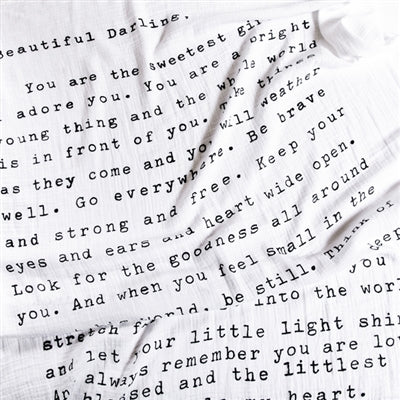 Beautiful Darling,
You are the sweetest girl
adore you. You are a bright
young thing and the whole world
is in front of you. Take things
as they come and you will weather
well. Go everywhere. Be brave
and strong and free. Keep your
eyes and ears and heart wide open.
Look for the goodness all around
you. And when you feel small in the
world, be still. Think of
stretch you keep
into the worl
and let your little light shin
always remember you are lov
and the littlest
my heart.